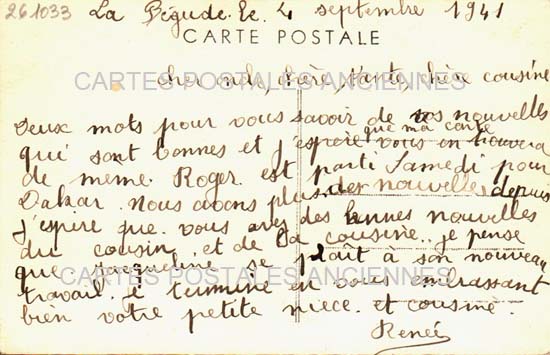 261033 La Bégude. Le. 4 septembre 1941
CARTE POSTALE
cher oncle, chère, tante, chère cousine
CARTES POSTALES ANCIENNES
Deux mots pour vous savoir de vos nouvelles
que ma carte
qui sont bonnes et j'espère vous en trouvera
de meme. Roger. est parti Samedi pour
Dakar. Nous avons plus des nouvelles depuis
j'espire que. vous avez des bonnes nouvelles
du cousin. et de la cousine. je pense
que jacqueline se plaît à son nouveau
CARTES POSTALES ANCIENNES
travail. je termine en vous embrassant
bien votre petite niece. et cousine.
Renée